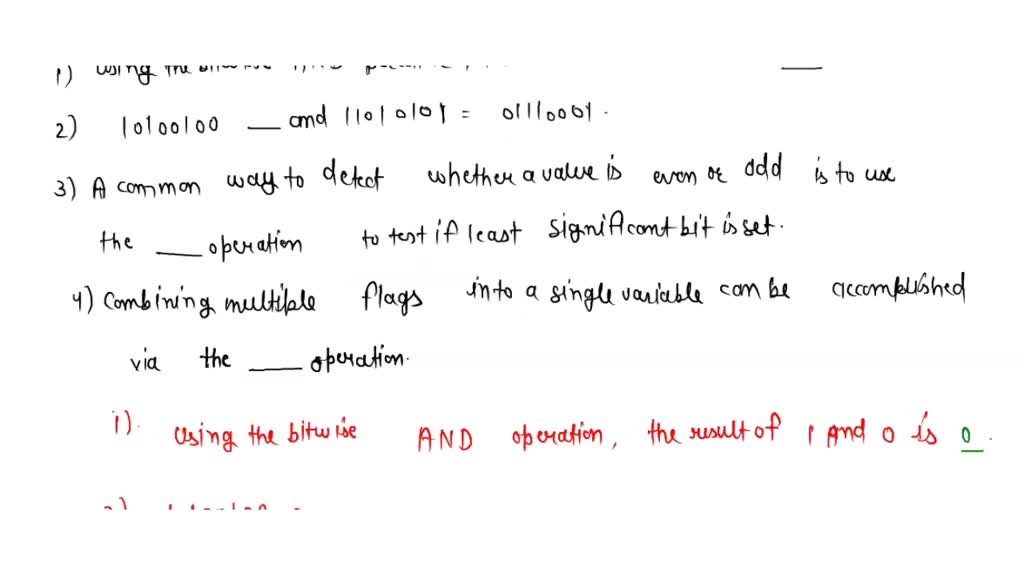 1) using the bitwise AND
2) 10100100 ___ and 11010101 = 01110001.
3) A common way to detect whether a value is even or odd is to use
the ___ operation to test if least significant bit is set.
4) Combining multiple flags into a single variable can be accomplished
via the ___ operation.
1). Using the bitwise AND operation, the result of 1 and 0 is 0.